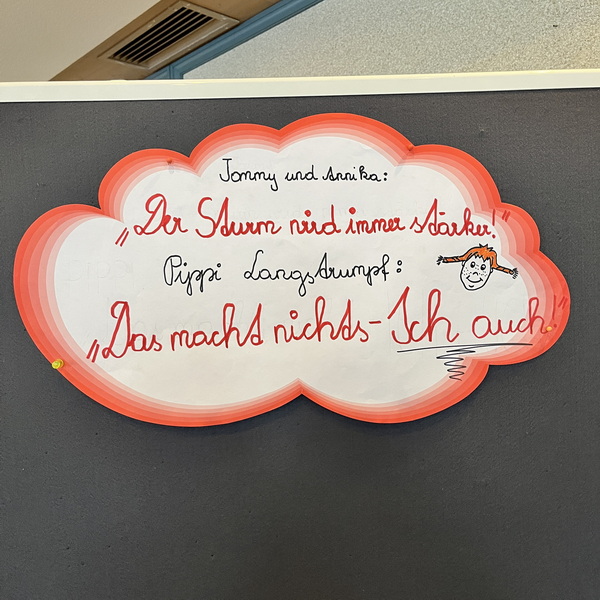 Tommy und Annika:
„Der Sturm wird immer stärker!"
Pippi Langstrumpf:
„Das macht nichts - Ich auch!"